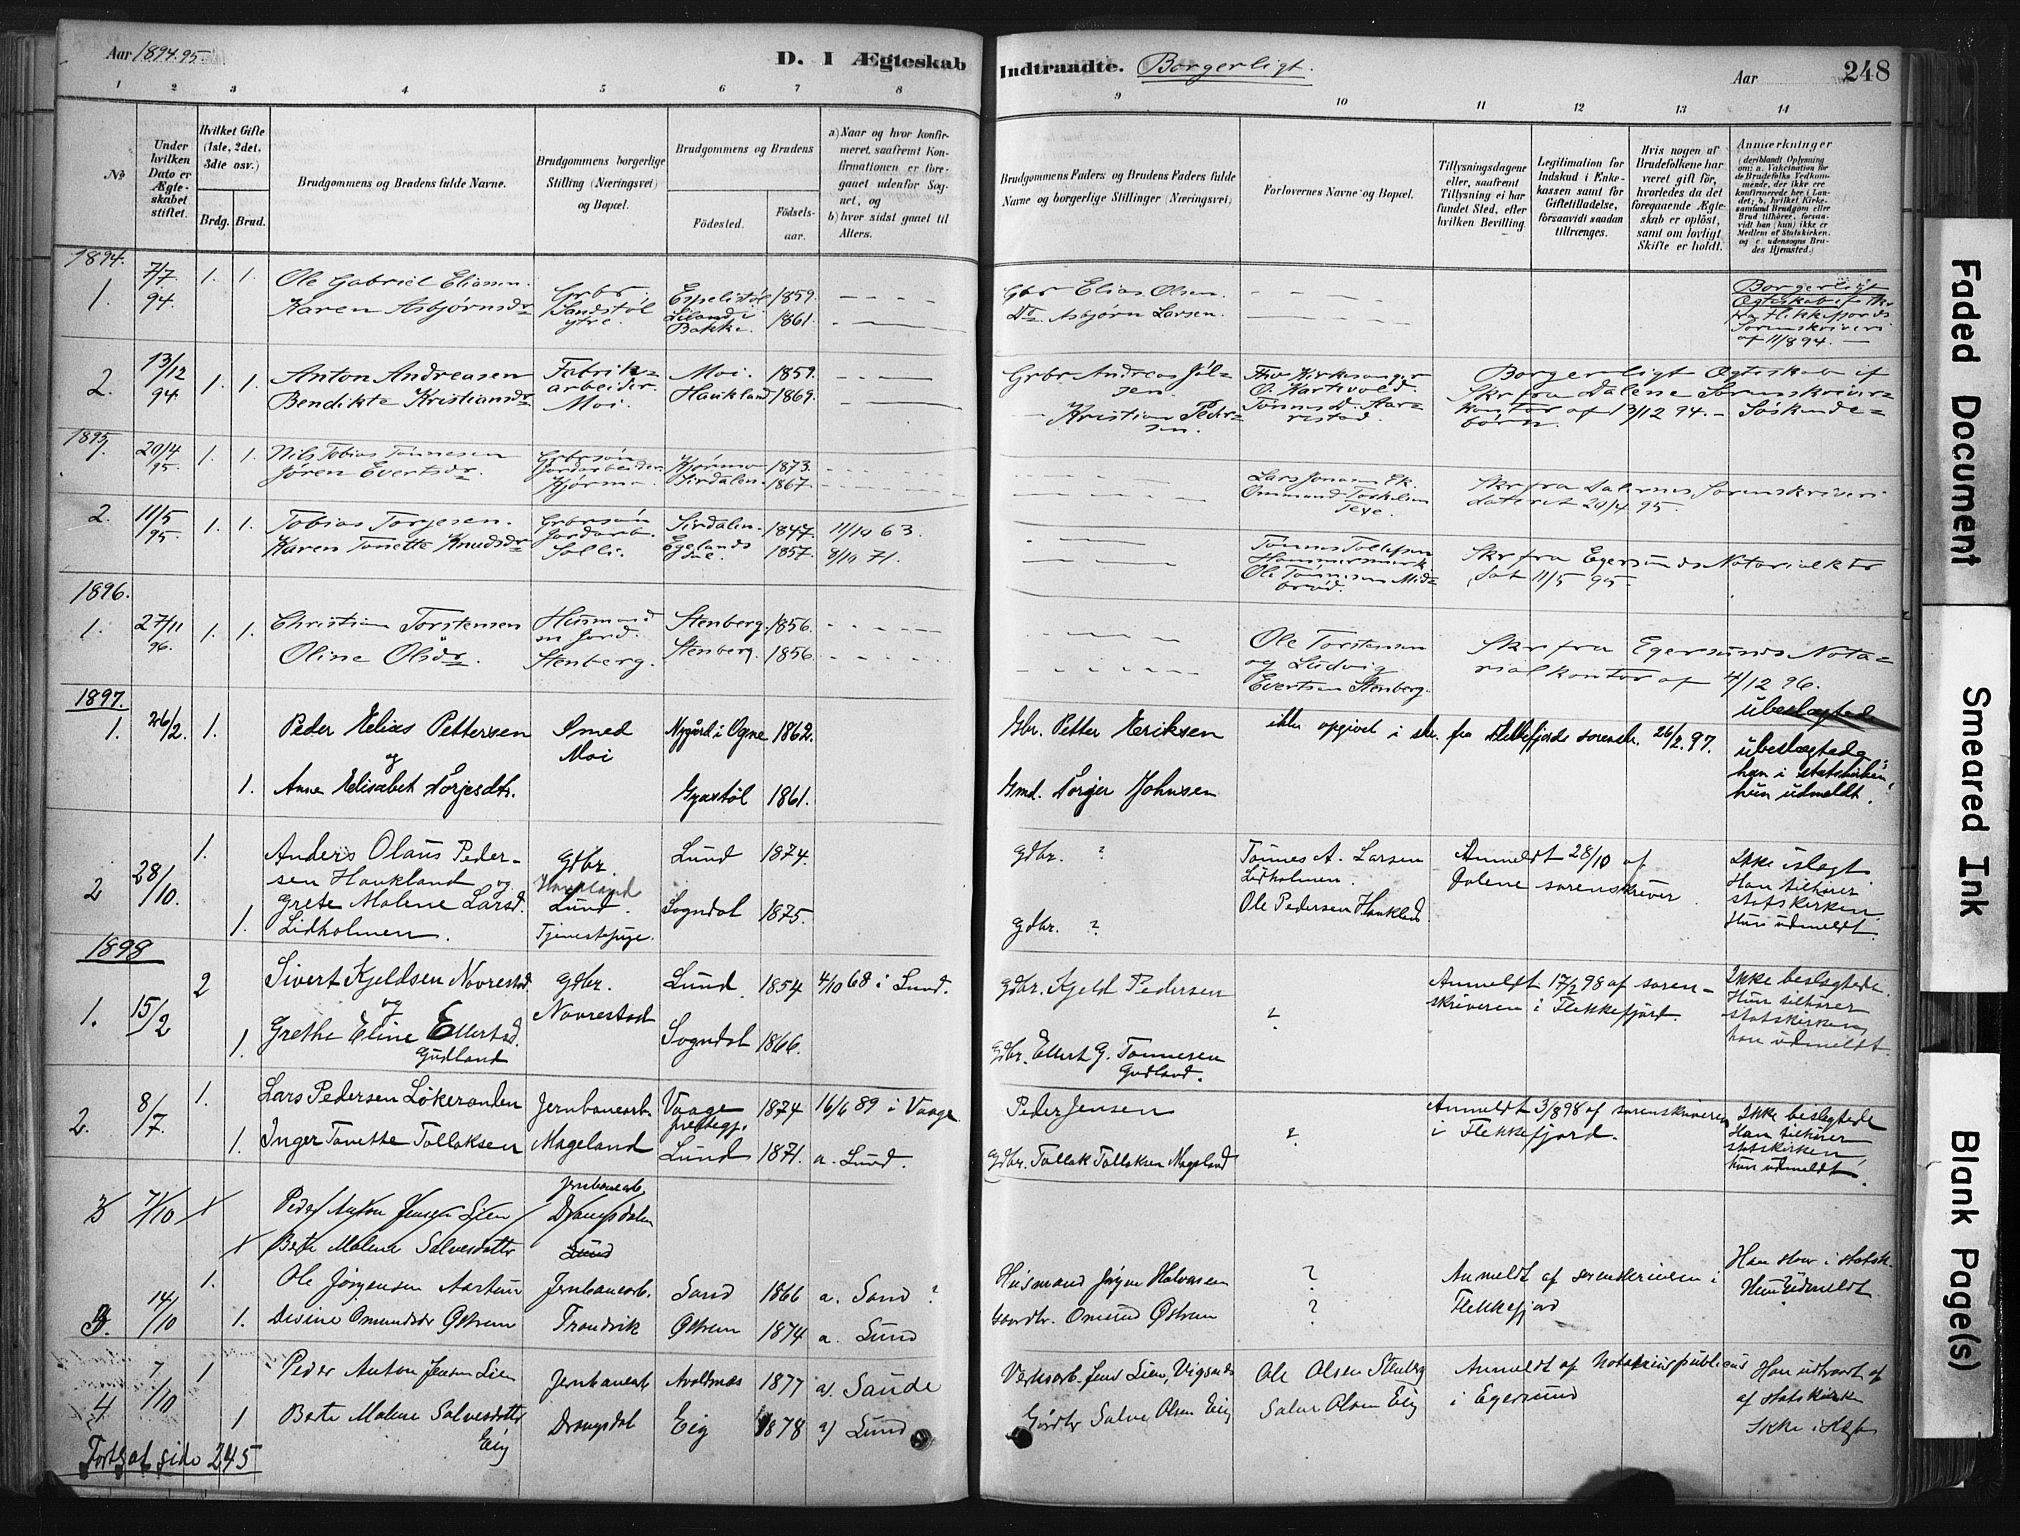 Aar 1894.95
D. I Ægteskab
Indtraadte. Borgerligt.
Aar
248
1 2 3 4 5 6 7 8
9 10 11 12 13 14
No
Under hvilken Dato er Ægteskabet stiftet.
Hvilket Gifte (1ste, 2det, 3die osv.)
Brdg. Brud.
Brudgommens og Brudens fulde Navne.
Brudgommens borgerlige Stilling (Næringsvei) og Bopæl.
Brudgommens og Brudens
Födested.
Födselsaar.
a) Naar og hvor konfirmeret, saafremt Konfirmationen er foregaaet udenfor Sognet, og
b) hvor sidst gaaet til Alters.
Brudgommens Faders og Brudens Faders fulde Navne og borgerlige Stillinger (Næringsvei)
Forlovernes Navne og Bopæl.
Tillysningsdagene eller, saafremt Tillysning ei har fundet Sted, efter hvilken Bevilling.
Legitimation for Indskud i Enkekassen samt for Giftetilladelse, forsaavidt saadan tiltrænges.
Hvis nogen af Brudefolkene har været gift før, hvorledes da det foregaaende Ægteskab er opløst, samt om lovligt Skifte er holdt.
Anmærkninger
(deriblandt Oplysning om: a. Vakcination for de Brudefolks Vedkommende, der ikke ere konfirmerede her i Landet; b. hvilket Kirkesamfund Brudgom eller Brud tilhører, forsaavidt han (hun) ikke er Medlem af Statskirken, og c. udensogns Brudes Hjemsted.)
1894.
1. 7/7 94. 1. 1.
Ole Gabriel Eliassen
Karen Asbjørnsdr
Grbr. Sandstøl ytre.
Espelistøl 1859.
Eiland i Bakke. 1861.
Gbr Elias Olsen.
Do Asbjørn Larsen.
Borgerligt
Ægteskab if. Skr
fra Flekkefjords
Sorenskriveri
af 11/8 94. —
2. 13/12 94 1. 1.
Anton Andreasen
Bendikte Kristiansdr
Fabrik=
arbeider
Moi.
Moi. 1859.
Haukland 1869.
Grbr Andreas Jøl=
sen.
Kristian Peder=
sen.
Kirkesanger
O. Hartevold.
Tønnes D. Aar=
restad.
Borgerligt Ægteskab if
Skr fra Dalene Sorenskriver=
kontor af 13/12 94. — Søskende=
børn.
1895.
20/4 95. 1. 1.
Nils Tobias Tønnesen
Jøren Evertsdr.
Grbrsøn
Jordarbeider
Kjørmo
Kjørmo 1873.
Sirdalen. 1867.
Lars Jonassen Ek.
Ommund Torkelsen
Texe.
Skr fra Dalernes Sorenskriveri
dateret 20/4 95.
2. 11/5 95 1. 1.
Tobias Torjesen.
Karen Tonette Knudsdr
Grbrsøn
Jordarb.
Solli.
Sirdalen. 1847. 11/10 63.
Egelands
dal. 1857. 8/10 71.
Tønnes Tollefsen
Hammermark
Ole Tønnesen Mid=
brød.
Skr fra Egersunds Notorialktr
dat 11/5 95.
1896.
1. 27/11 96. 1. 1.
Christian Torstensen
Oline Olsdr.
Husmand
m jord.
Stenberg.
Stenberg. 1856.
Stenberg. 1856.
Ole Torstensen
og Ludvig
Evertsen Stenberg.
Skr fra Egersunds Nota=
rialkontor af 4/12 96.
ubeslægtede
1897.
1. 26/2. 1.
Peder Elias Pettersen
og
1. Anne Elisabet Torjesdtr.
Smed
Moi
Nygård i Ogne 1862.
Gyastøl 1861.
Gbr. Petter Eriksen
Gmd. Torger Johnsen
ikke opgivet i skr. fra Flekkefjords sorenskr. 26/2. 97.
ubeslægtede,
han i statskirken,
hun udmeldt.
2 28/10. 1.
Anders Olaus Peder-
sen Haukland og
1. Grete Malene Larsd.
Lidholmen.
Gdbr.
Haukland
Lund.
Tjenestepige.
Lund 1874.
Sogndal 1875.
gdbr. ?
gdbr. ?
Tönnes A. Larsen
Lidholmen.
Ole Pedersen Haukland
Anmeldt 28/10 af
Dalene sorenskriver.
Ikke i slægt
Han tilhører
statskirken.
Hun udmeldt.
1898
1. 15/2 2
Sivert Kjeldsen Novrestad
og
1. Grethe Eline Ellertsd.
Gudland
gdbr.
Novrestad
Lund. 1854 4/10 68 i Lund.
Sogndal 1866.
gdbr. Kjeld Pedersen
gdbr. Ellert G. Tønnesen
Gudland.
?
Anmeldt 17/2 98 af soren-
skriveren i Flekkefjord.
Ikke beslægtede.
Hun tilhører
statskirken,
han udmeldt.
2. 8/7. 1.
Lars Pedersen Løkeranden
1. Inger Tonette Tollaksen
Jernbanearb.
Mageland
Vaage
prestegj. 1874 16/6 89 i Vaage
Lund 1871. a. Lund.
Peder Jensen
gdbr. Tollak Tollaksen Mageland
?
Anmeldt 3/8 98 af sorenskriveren
i Flekkefjord.
Ikke beslægtede
Han tilhører
statskirken,
hun udmeldt.
3 7/10 1
Peder Anton Jensen Lien
1 Berte Malene Salvesdatter
Jernbanearb.
Drangsdalen
Lund
3. 14/10 1.
Ole Jørgensen Aartun
1. Desine Omundsdr Østrem
Jernbanearb.
Trondvik
Sand 1866 a. Sand ?
Østrem 1874 a. Lund
Husmand Jørgen Halvorsen
Gaardbr. Omund Østrem
?
?
Anmeldt af sorenskriveren i
Flekkefjord
Han staar i statsk.
Hun udmeldt.
4 7/10 1
Peder Anton Jensen Lien
1 Berte Malene Salvesdatter
Eig
Jernbanearb
Drangsdal
Avaldsnes 1877 a) Saude
Eig 1878 a) Lund
Verksarb. Jens Lien, Vigsnes
Gårdbr Salve Olsen Eig
Ole Olsen Stenberg
Salve Olsen Eig
Anmeldt af Notarius publicus
i Egersund
Han udtraadt af
af statskirken
Ikke i slægt
Fortsat side 245
Faded Document
Smeared Ink
Blank Page(s)